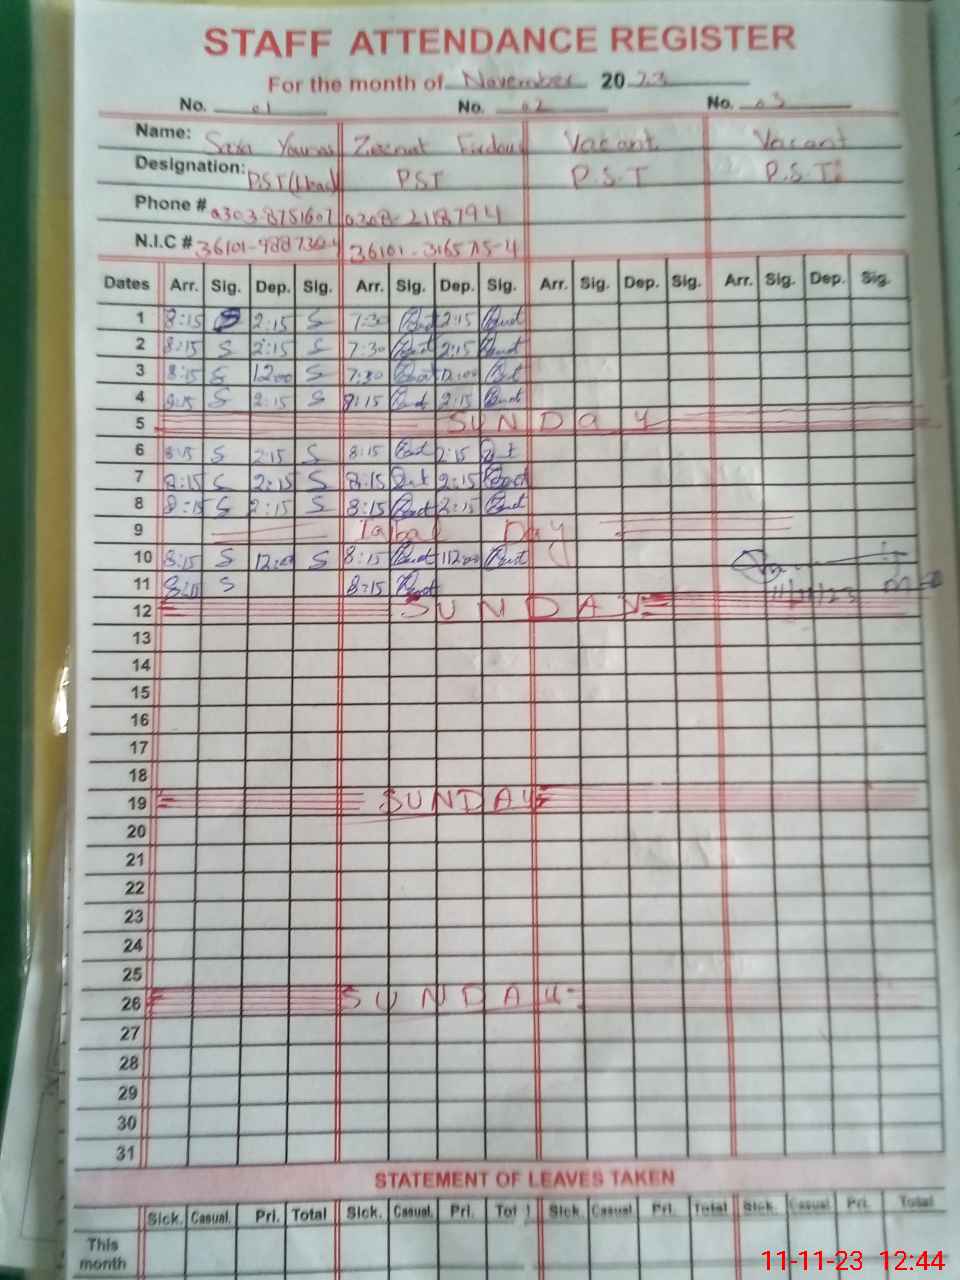 STAFF ATTENDANCE REGISTER
For the month of November 2023
No. 01 No. 02 No. 03
Name: Zeenat Vacant Vacant
Designation: PST (Head) PST P.S.T P.S.T
Phone #
N.I.C #
Dates Arr. Sig. Dep. Sig. Arr. Sig. Dep. Sig. Arr. Sig. Dep. Sig. Arr. Sig. Dep. Sig.
1 8:15 2:15 S 7:30 2:15
2 8:15 S 2:15 S 7:30 2:15
3 8:15 S 12:00 S 7:30 12:00
4 8:15 S 2:15 S 8:15 2:15
5 SUNDAY
6 8:15 S 2:15 S 8:15 2:15
7 8:15 S 2:15 S 8:15 2:15
8 8:15 S 2:15 S 8:15 2:15
9 Iqbal Day
10 8:15 S 12:00 S 8:15 12:00
11 8:15 S 8:15
12 SUNDAY
13
14
15
16
17
18
19 SUNDAY
20
21
22
23
24
25
26 SUNDAY
27
28
29
30
31
STATEMENT OF LEAVES TAKEN
Sick. Casual. Pri. Total Sick. Casual. Pri. Total Sick. Casual. Pri. Total Sick. Casual Pri. Total
This
month
11-11-23 12:44